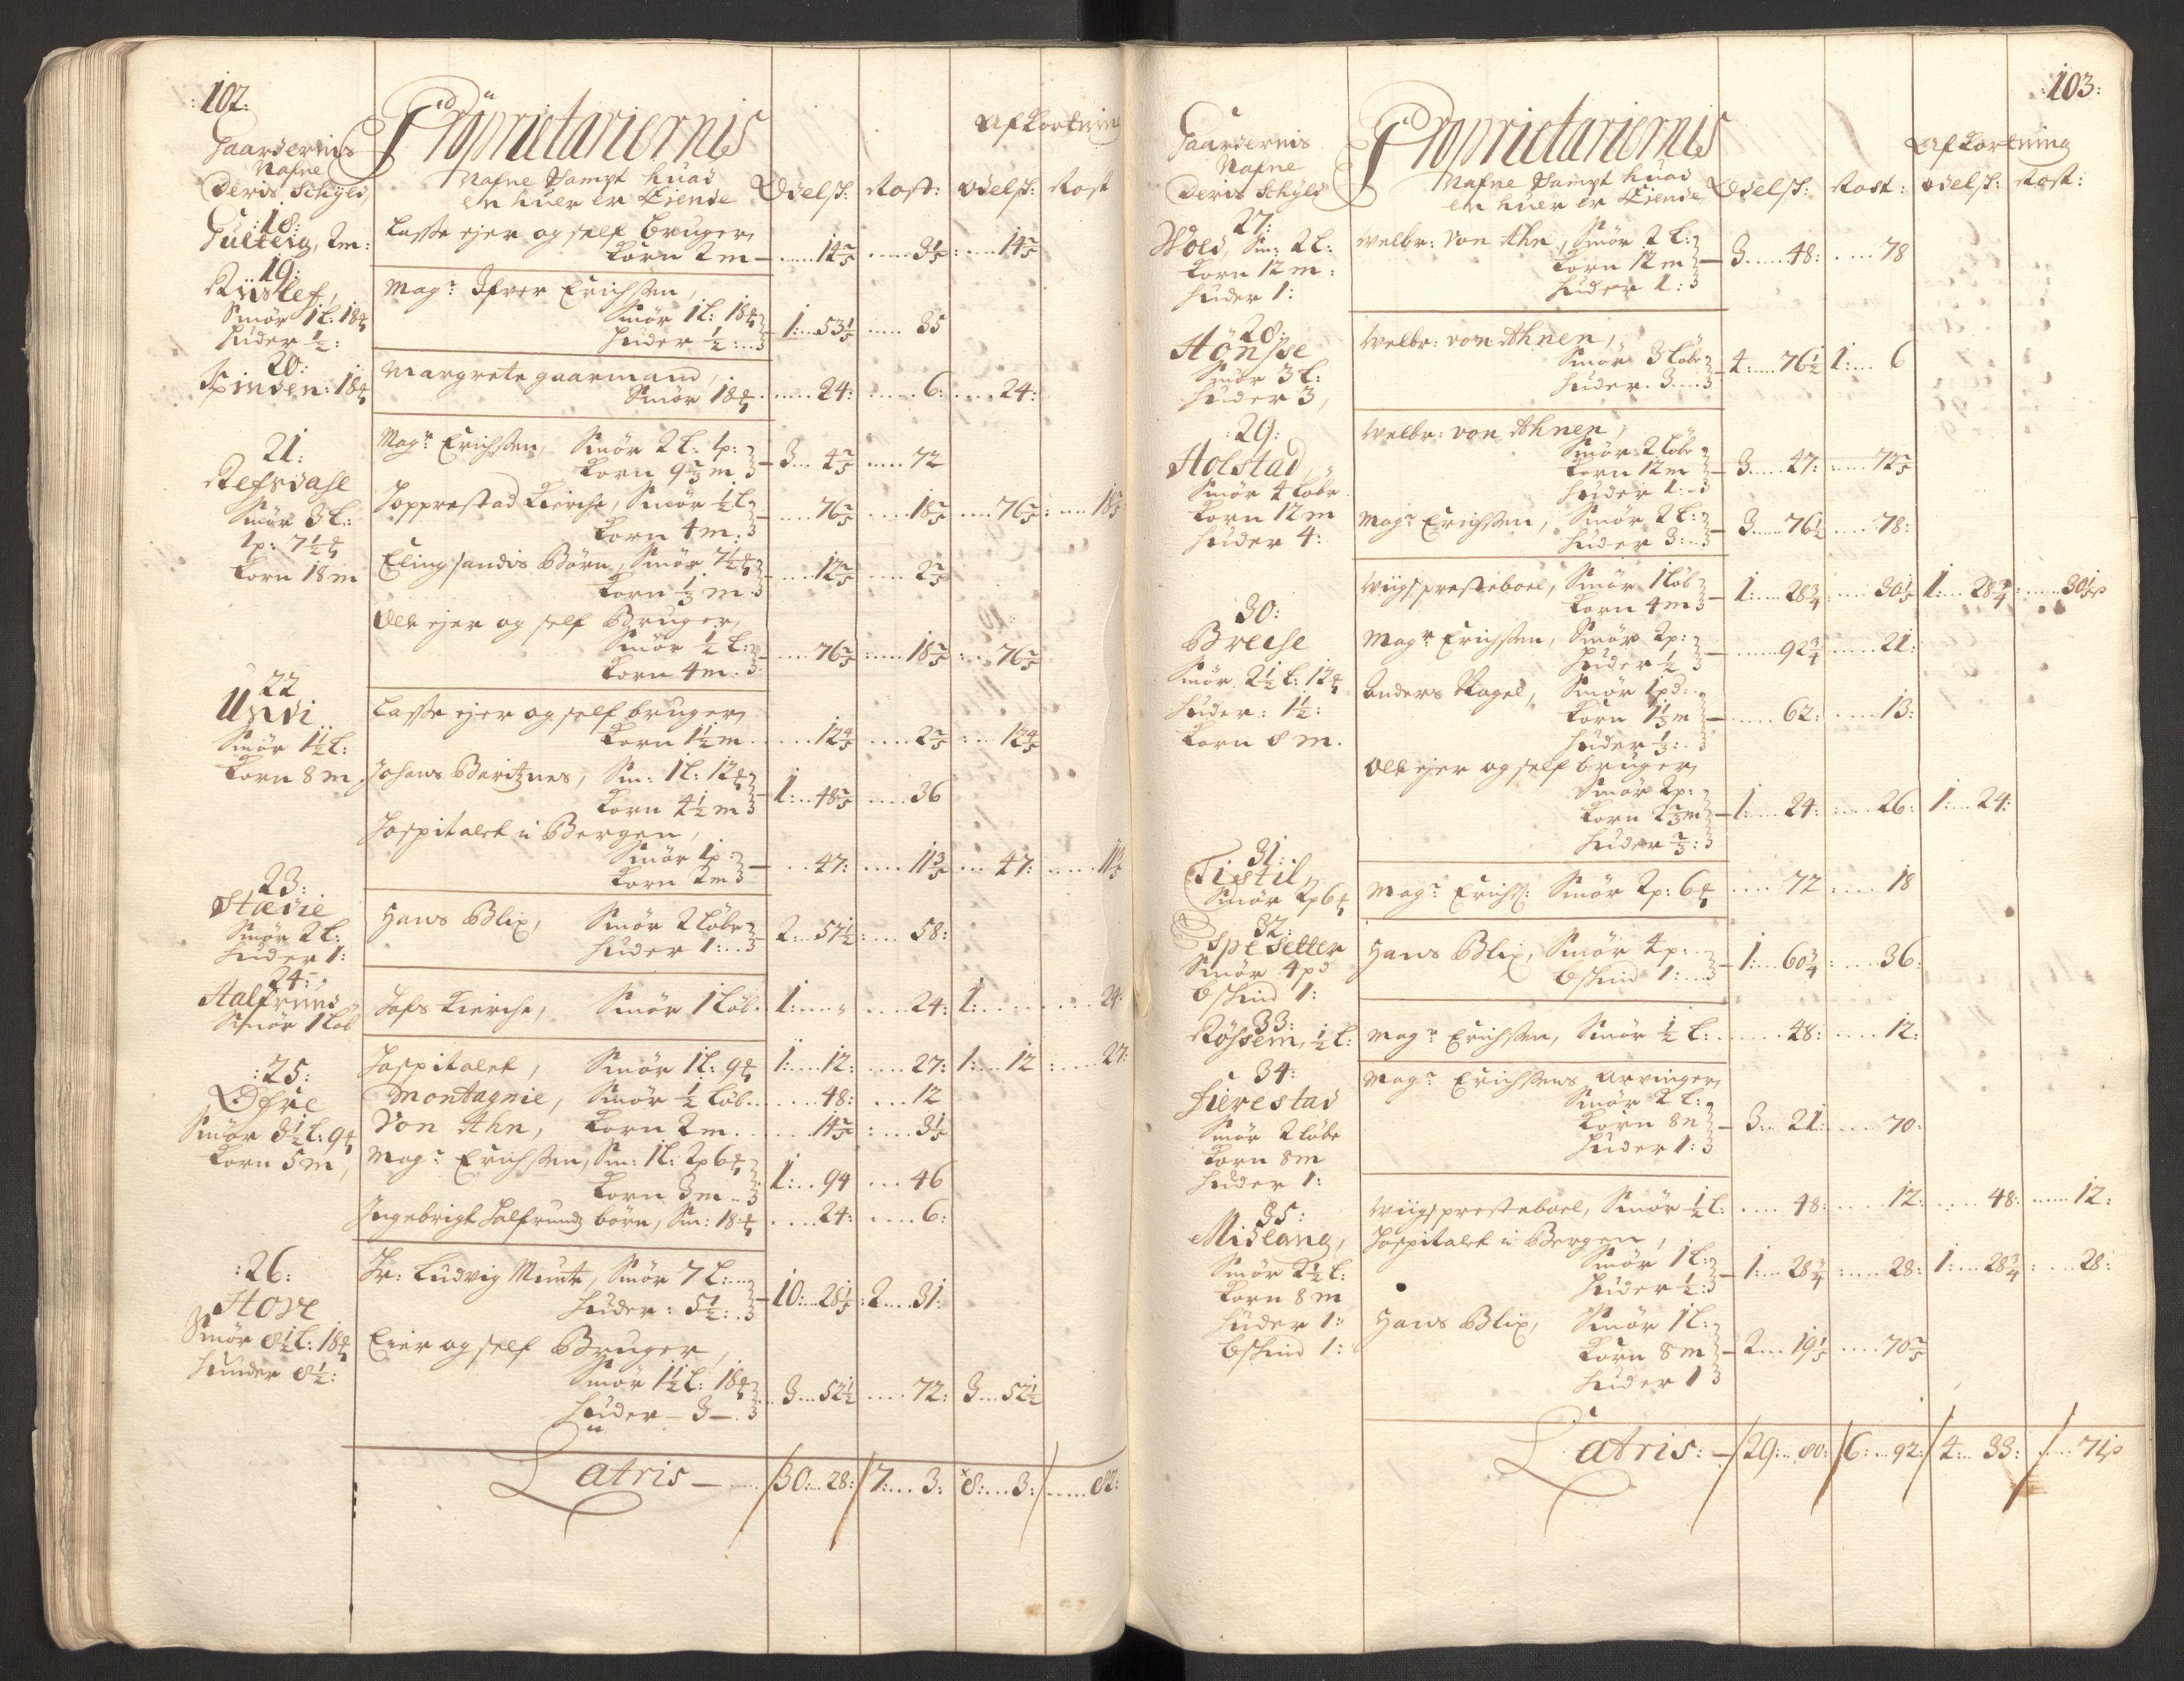 :102:
Gaardernis
Nafne
Deris Schyld,
Proprietariernis
Nafne Sampt huad
en huer er Eiende
Afkortning
Odelsk: Rost: odelsk: Rost
:18:
Gulteig, 2m:
Lasse ejer og self bruger,
Korn 2 m — 14 2/5 ... 3 1/5 : ... 14 2/5
19:
Smör 1 l: 18 ₰
Huder ½:
Magr: Ifver Erichsen,
Smör 1 l: 18 ₰
Huder ½: — 1: 53 1/5 ... 35
20:
Spinden: 18 ₰
Margrete gaarmand,
Smör 18 ₰ ... 24: ... 6: ... 24:
21:
Refsdahl
Smör 3 l:
1p: 7½ ₰
Korn 18 m
Magr: Erichsen, Smör 2 l: 1p:
Korn 9 2/3 m — 3 ... 4 2/5 ... 72
Hopprestad Kierche, Smör ½ l
Korn 4 m: — 76 2/5 ... 18 2/5 ... 76 2/5 : ... 18 2/5
Elingsandis Börn, Smör 7½ ₰
Korn ⅓ m — 12 2/5 ... 2 2/5
Ole ejer og self Bruger,
Smör ½ l:
Korn 4 m. — 76 2/5 : ... 18 2/5 : ... 76 2/5
22
Undi
Smör 1½ l:
Korn 8 m.
Lasse ejer og self bruger,
Korn 1½ m ... 12 4/5 ... 2 2/5 : ... 12 4/5
Johans Baritznes, Sm: 1 l: 12 ₰
Korn 4½ m — 1: 48 2/5 ... 36
Hospitalet i Bergen,
Smör 1p:
Korn 2 m — 47: ... 11 3/5 ... 47: ... 11 3/5
23:
Stædie
Smör 2 l:
Huder 1:
Hans Blix, Smör 2 löbe
Huder 1: — 2: 57½ : ... 58:
24:
Halfrund
Smör 1 löb
Hofs Kierche, Smör 1 löb. 1: ... „ ... 24: 1: ... 24:
:25:
Öfre
Smör 3½ l: 9 ₰
Korn 5 m,
Hospitalet, Smör 1 l: 9 ₰ 1: 12: ... 27: 1: 12 : ... 27:
Montagnie, Smör ½ löb ... 48: ... 12
Von Ahn, Korn 2 m. ... 14 2/5 : ... 3 1/5
Magr: Erichsen, Sm: 1 l: 2p 6 ₰
Korn 3 m — 1: 94 ... 46
Ingebrigt Halfrunds börn, Sm: 18 ₰ ... 24: ... 6:
:26:
Hove
Smör 8½ l: 18 ₰
Hunder 8½:
Hr: Ludvig Munte, Smör 7 l:
Huder: 5½: — 10: 28 1/5 : 2 ... 31:
Eier og self Bruger,
Smör 1½ l: 18 ₰
Huder — 3 — ... 3 ... 52½ ... 72: 3 ... 52½
Latris — /30: 28: /7: ... 3: 8: ... 3: / ... 82:
:103:
Gaardernis
Nafne
Deris Schyld
Proprietariernis
Nafne Sampt huad
en huer er Eiende
Afkortning
Odelsk: Rost: odelsk: Rost:
27:
Wold, Sm: 2 l:
Korn 12 m:
Huder 1:
Welbr: von Ahn, Smör 2 l:
Korn 12 m — 3 ... 48: ... 78
Huder 1:
28:
Hönsse
Smör 3 l:
Huder 3,
Welbr: von Ahnen,
Smör 3 löbe
Huder. 3 — 4: 76½ 1: ... 6
:29:
Holstad
Smör 4 löbe
Korn 12 m
Huder 4:
Welbr: von Ahnen,
Smör 2 löbe
Korn 12 m — 3 ... 47: ... 72 2/5
Huder 1:
Magr: Erichsen, Smör 2 l:
Huder 3: — 3 ... 76½ ... 78:
30:
Brecke
Smör 2½ l: 12 ₰
Huder: 1½:
Korn 8 m.
Wiigs presteboel, Smör 1 löb
Korn 4 m — 1: 28¾ : ... 30 1/5 1: 28¾ : ... 30 1/5 ß
Magr: Erichsen, Smör 2p:
Huder ½ — 92¾ ... 21:
Anders Nagel, Smör 1pd:
Korn 1⅓ m — 62: ... 13:
Huder ⅓:
Ole ejer og self bruger,
Smör 2p:
Korn 2⅔ m — 1: 24: ... 26: 1: 24:
Huder ⅔:
31:
Tistil,
Smör 2p 6 ₰
Magr: Erichs: Smör 2p: 6 ₰ ... 72 ... 18
32:
Espesetter
Smör 4pd
bskind 1:
Hans Blix, Smör 4p:
bskind 1: — 1: 60¾ : ... 36:
33:
Rössem, ½ l:
Magr: Erichsen, Smör ½ l: ... 48: ... 12:
34:
Fierestad
Smör 2 löbe
Korn 8 m
Huder 1:
Magr: Erichsens Arvinger,
Smör 2 l:
Korn 8 m — 3: 21: ... 70:
Huder 1:
35:
Midlang,
Smör 2½ l:
Korn 8 m
Huder 1:
bskind 1:
Wiigs presteboel, Smör ½ l: ... 48: ... 12: ... 48: ... 12:
Hospitalet i Bergen,
Smör 1 l:
Huder ½: — 1: 28¾ : ... 28: 1: 28¾ : ... 28:
Hans Blix, Smör 1 l:
Korn 8 m — 2 ... 19 1/5 ... 70 2/5
Huder 1
Latris: — /29: 80: /6: 92: /4: 33: / ... 71 ß